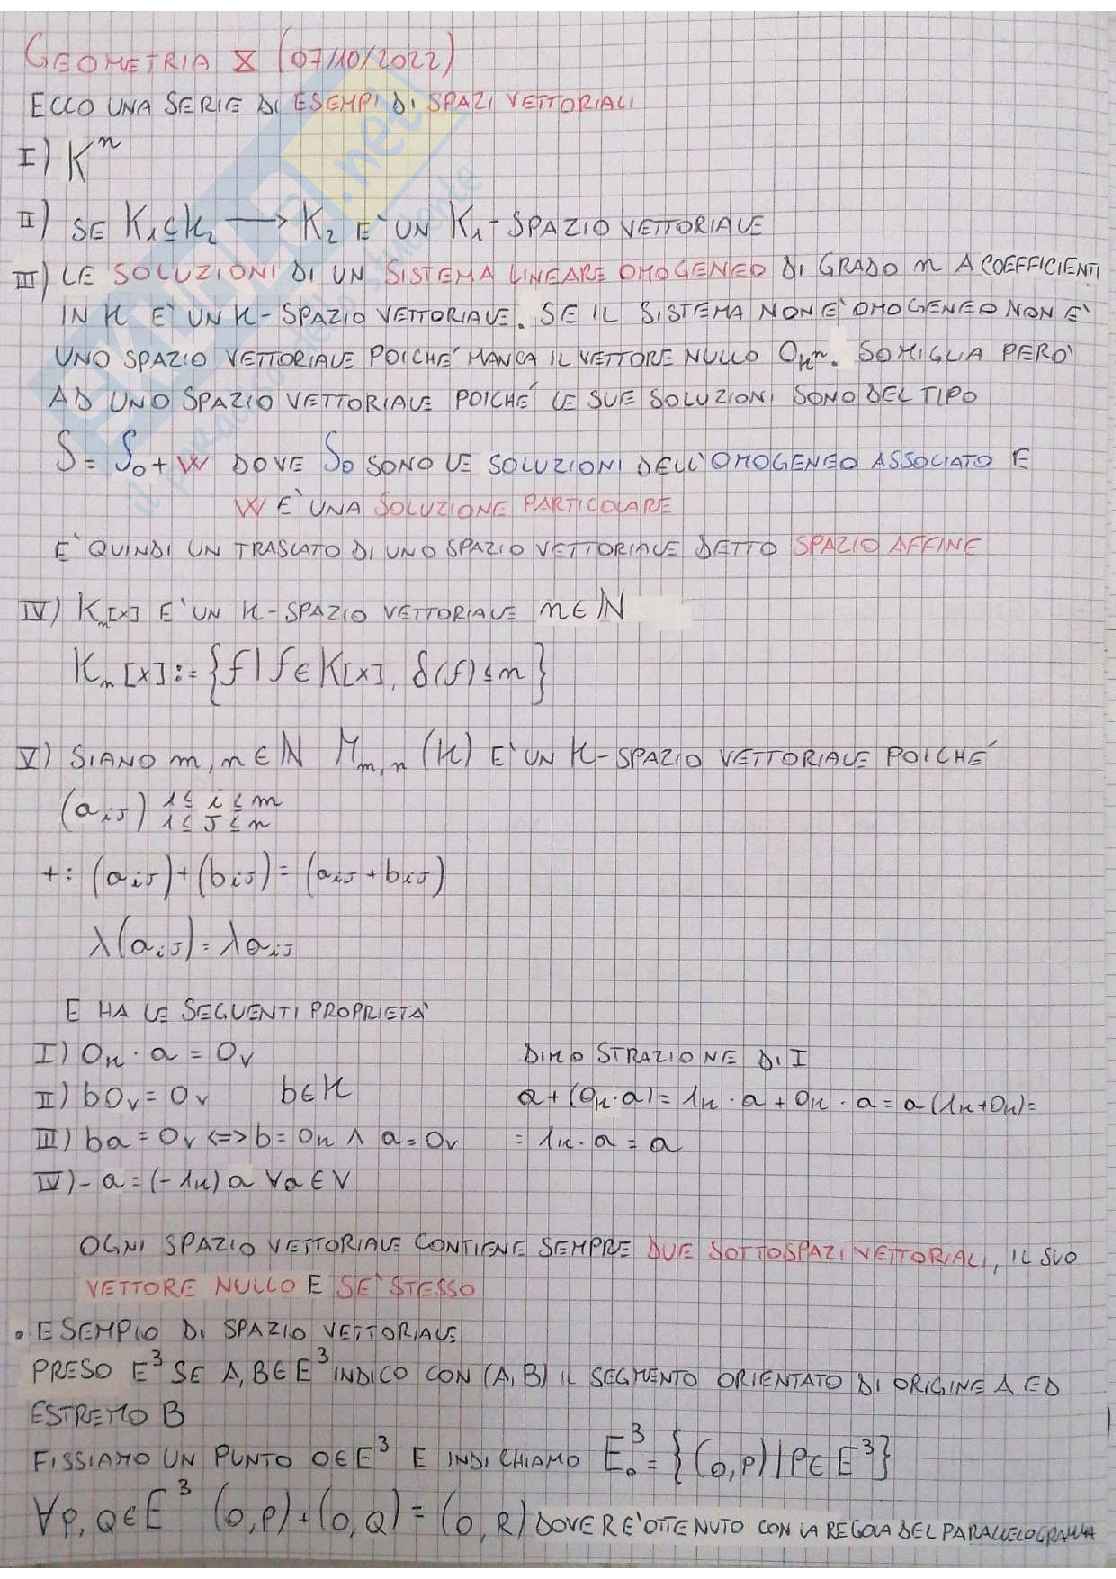 GEOMETRIA X (07/10/2022)
ECCO UNA SERIE DI ESEMPI DI SPAZI VETTORIALI
I) Kⁿ
II) SE K₁⊆K₂ → K₂ E' UN K₁-SPAZIO VETTORIALE
III) LE SOLUZIONI DI UN SISTEMA LINEARE OMOGENEO DI GRADO n A COEFFICIENTI
IN K E' UN K-SPAZIO VETTORIALE. SE IL SISTEMA NON E' OMOGENEO NON E'
UNO SPAZIO VETTORIALE POICHE' MANCA IL VETTORE NULLO 0_Kⁿ. SOMIGLIA PERO'
AD UNO SPAZIO VETTORIALE POICHE' LE SUE SOLUZIONI SONO DEL TIPO
S = S₀ + W DOVE S₀ SONO LE SOLUZIONI DELL'OMOGENEO ASSOCIATO E
W E' UNA SOLUZIONE PARTICOLARE
E' QUINDI UN TRASLATO DI UNO SPAZIO VETTORIALE DETTO SPAZIO AFFINE
IV) Kₙ[x] E' UN K-SPAZIO VETTORIALE n∈ℕ
Kₙ[x] := {f | f∈K[x], δ(f)≤n}
V) SIANO m,n∈ℕ M_m,n(K) E' UN K-SPAZIO VETTORIALE POICHE'
(a_iJ) 1≤i≤m
1≤J≤n
+: (a_iJ)+(b_iJ)=(a_iJ+b_iJ)
λ(a_iJ)=λa_iJ
E HA LE SEGUENTI PROPRIETA'
I) 0_K·a=0_V
II) b0_V=0_V b∈K
III) ba=0_V <=> b=0_K ∧ a=0_V
IV) -a=(-1_K)a ∀a∈V
DIMOSTRAZIONE DI I
a+(0_K·a)=1_K·a+0_K·a=a(1_K+0_K)=
=1_K·a=a
OGNI SPAZIO VETTORIALE CONTIENE SEMPRE DUE SOTTOSPAZI VETTORIALI, IL SUO
VETTORE NULLO E SE' STESSO
• ESEMPIO DI SPAZIO VETTORIALE
PRESO E³ SE A,B∈E³ INDICO CON (A,B) IL SEGMENTO ORIENTATO DI ORIGINE A ED
ESTREMO B
FISSIAMO UN PUNTO O∈E³ E INDICHIAMO E₀³={(O,P)|P∈E³}
∀P,Q∈E³ (O,P)+(O,Q)=(O,R) DOVE R E' OTTENUTO CON LA REGOLA DEL PARALLELOGRAMMA